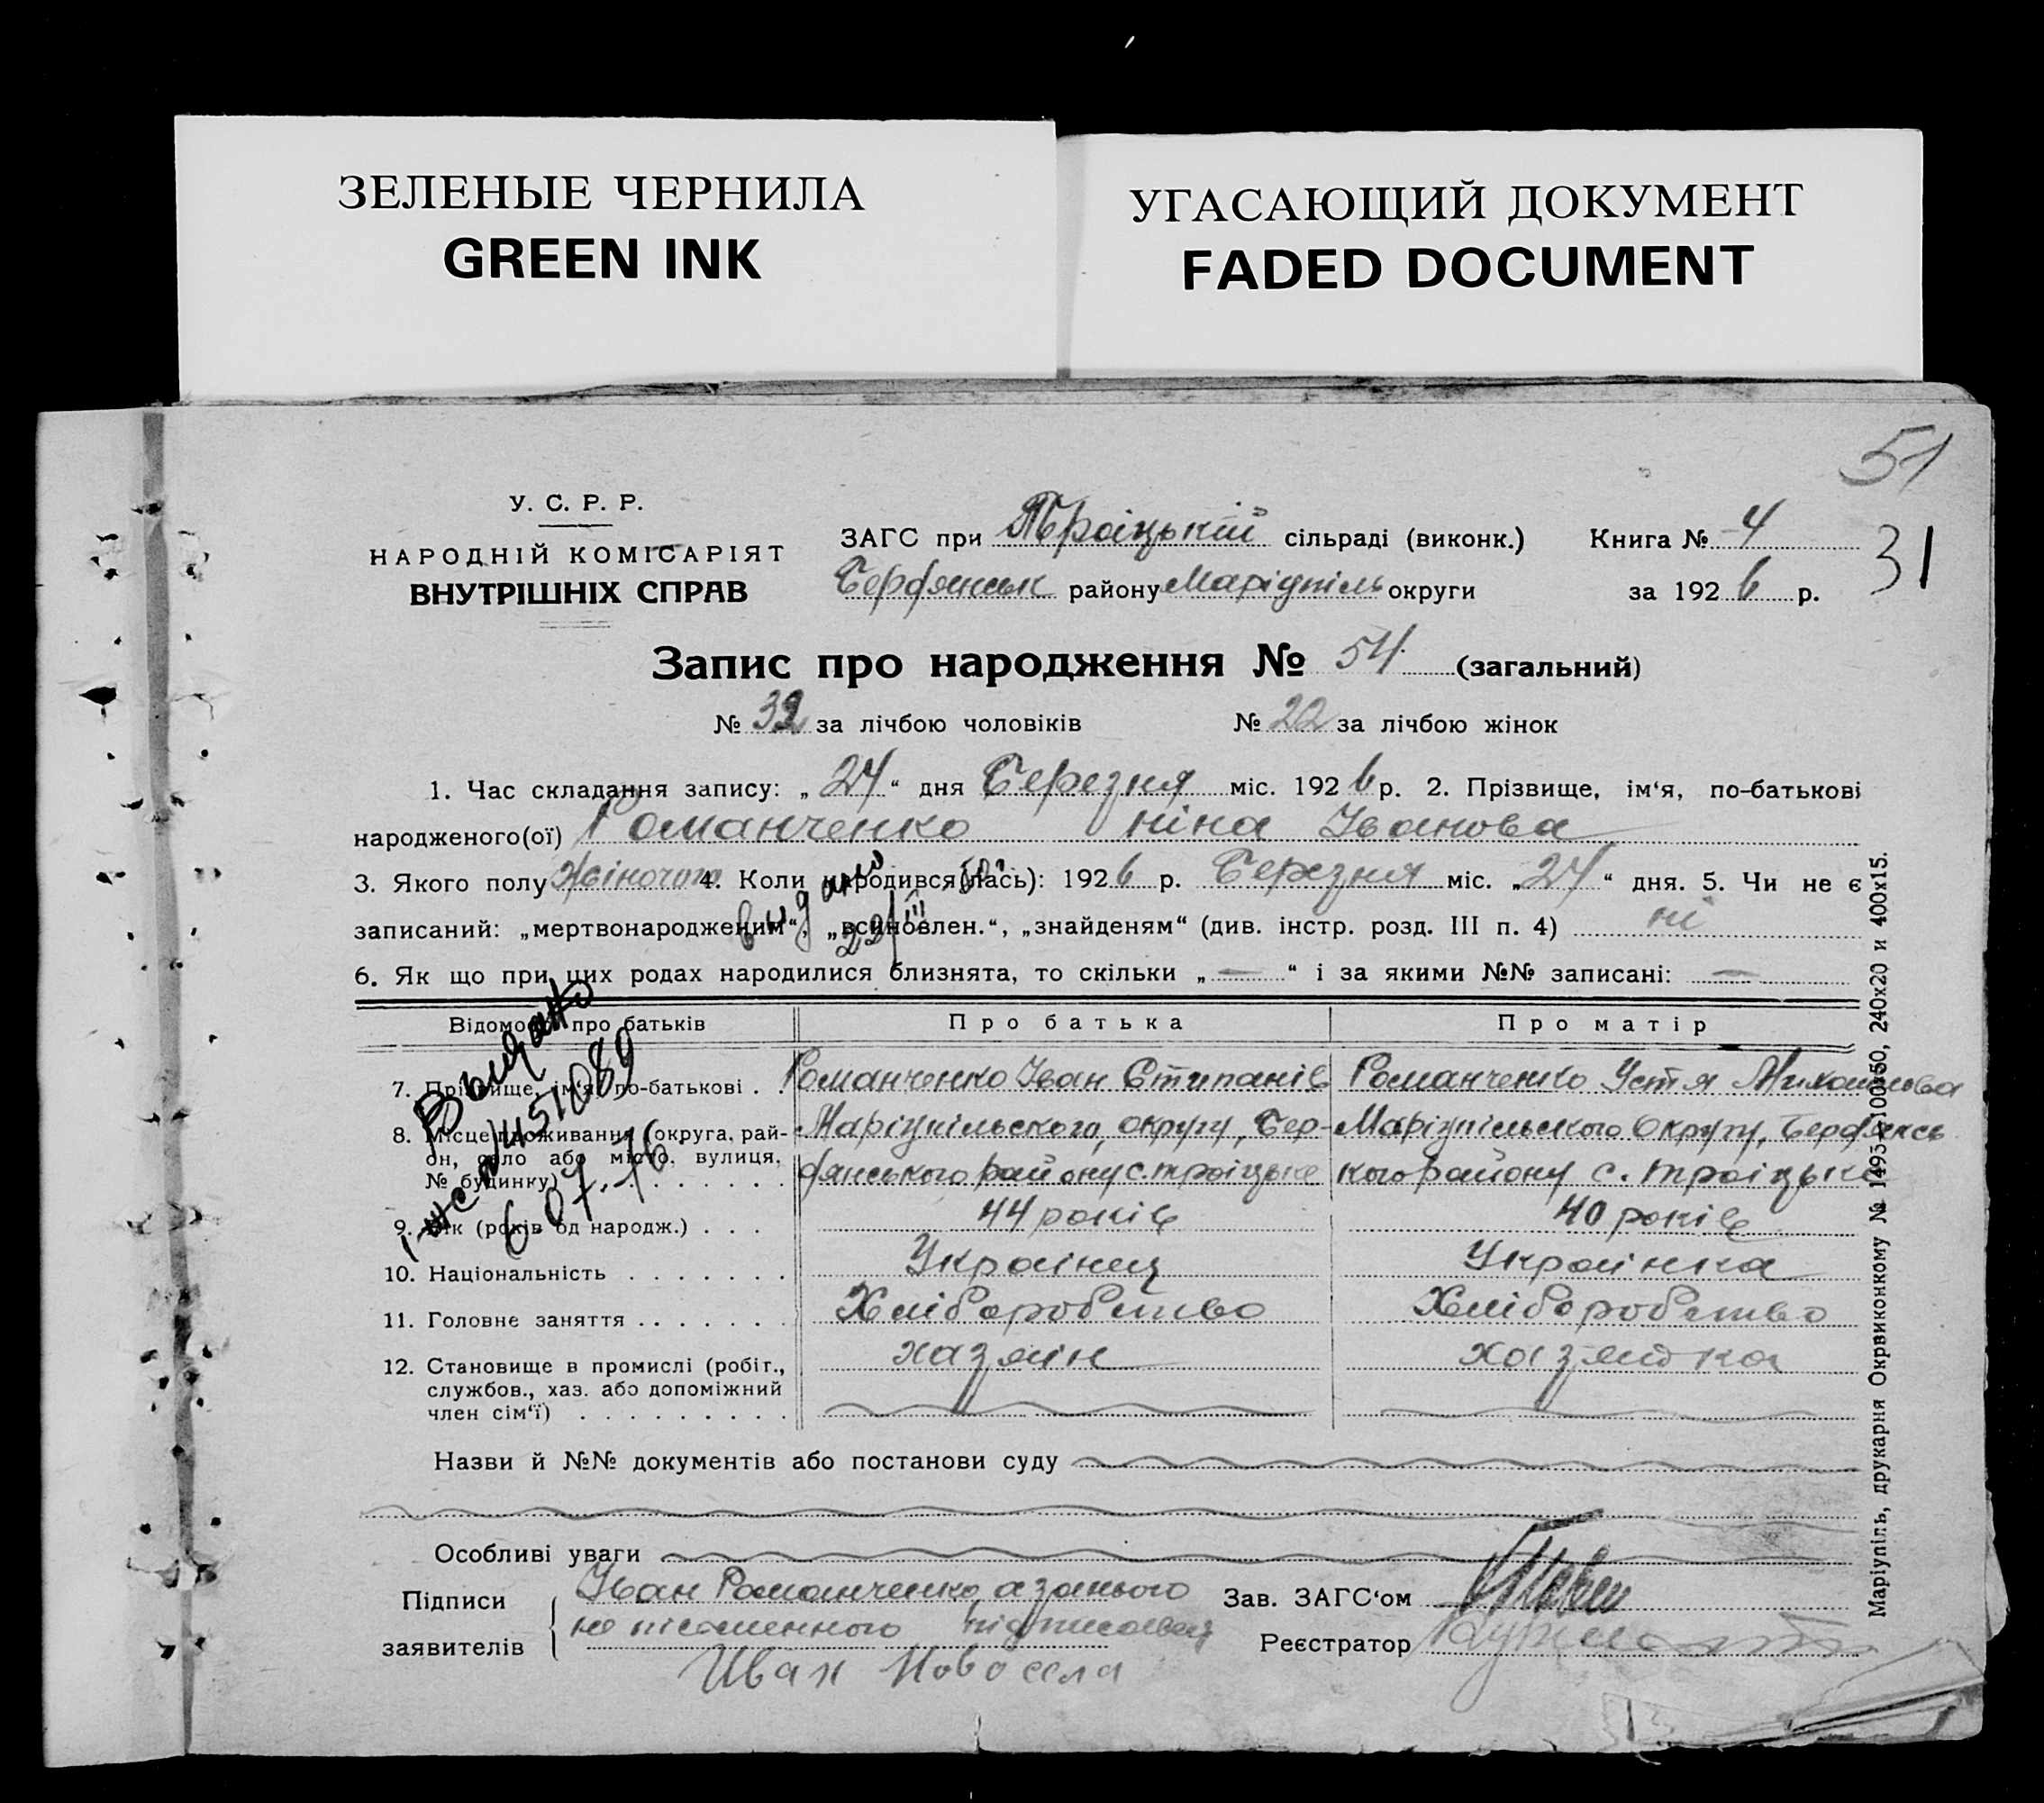 ЗЕЛЕНЫЕ ЧЕРНИЛА
GREEN INK
УГАСАЮЩИЙ ДОКУМЕНТ
FADED DOCUMENT
51
31
У. С. Р. Р.
НАРОДНІЙ КОМІСАРІЯТ
ВНУТРІШНІХ СПРАВ
ЗАГС при Троіцькій сільраді (виконк.) Книга № 4
Бердянськ району Маріупіль округи за 1926 р.
Запис про народження № 54 (загальний)
№ 32 за лічбою чоловіків № 22 за лічбою жінок
1. Час складання запису: „24“ дня Березня міс. 1926 р. 2. Прізвище, ім'я, по-батькові
народженого(ої) Романченко ніна Іванова
3. Якого полу Жіночого 4. Коли народився(лась): 1926 р. Березня міс. „24“ дня. 5. Чи не є
записаний: „мертвонародженим“, „всиновлен.“, „знайденям“ (див. інстр. розд. III п. 4) ні
6. Як що при цих родах народилися близнята, то скільки „—“ і за якими №№ записані: —
видано
22/III
Відомості про батьків Про батька Про матір
7. Прізвище, ім'я, по-батькові . . Романченко Іван Стипанів Романченко Устя Михайлова
8. Місце проживання (округа, рай- Маріупільского, округу, Бер- Маріупільского Округу, Бердянсь
он, село або місто, вулиця, дянського району с. троіцьке кого району с. троіцьке
№ будинку) . . . . . . .
9. Вік (років од народж.) . . . 44 років 40 років
10. Національність . . . . . . . Украінец Украінка
11. Головне заняття . . . . . . . Хліборобство Хліборобство
12. Становище в промислі (робіт., хазяін хазяйка
службов., хаз. або допоміжний
член сім'ї) . . . . . . . . .
Выдано
451089
6 07.76
Назви й №№ документів або постанови суду
Особливі уваги
Підписи
заявителів
Іван Романченко, а за нього
не писменного підписавсь
Иван Новосела
Зав. ЗАГС'ом
Реєстратор
Маріупіль, друкарня Окрвиконкому № 1493—100х50, 240х20 и 400х15.